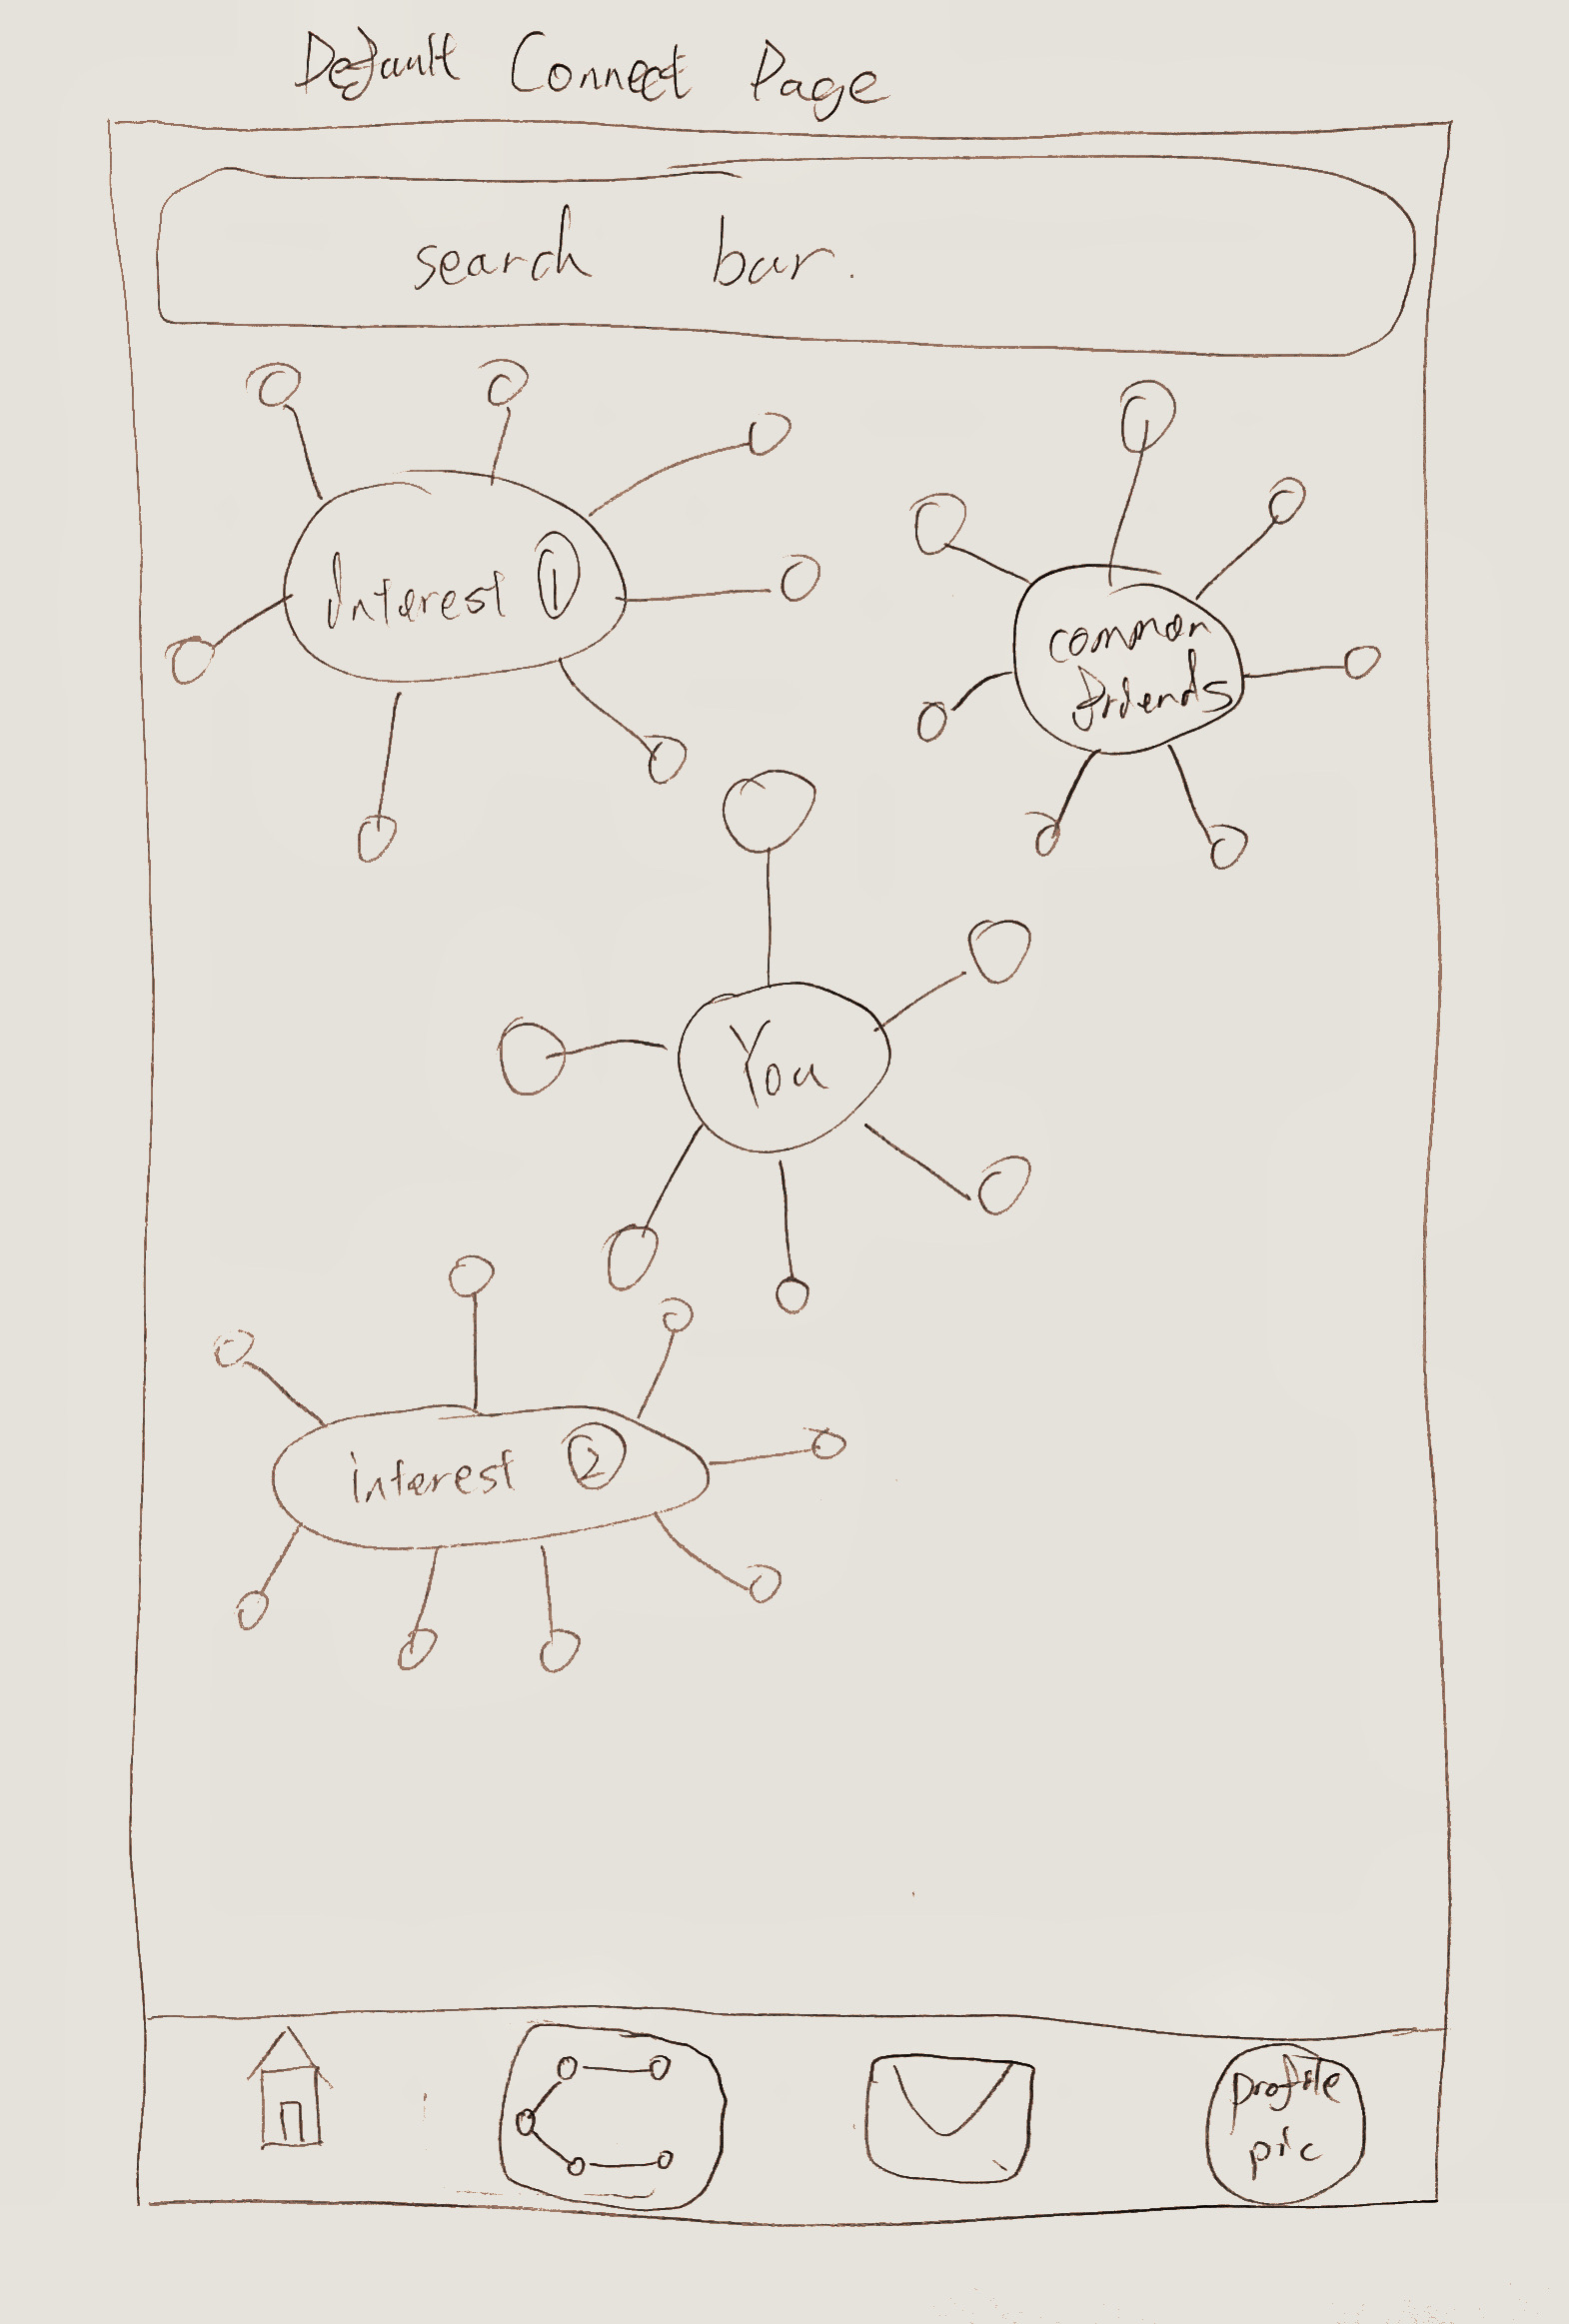 Default Connect Page
search bar.
Interest ①
common
friends
You
interest ②
profile
pic